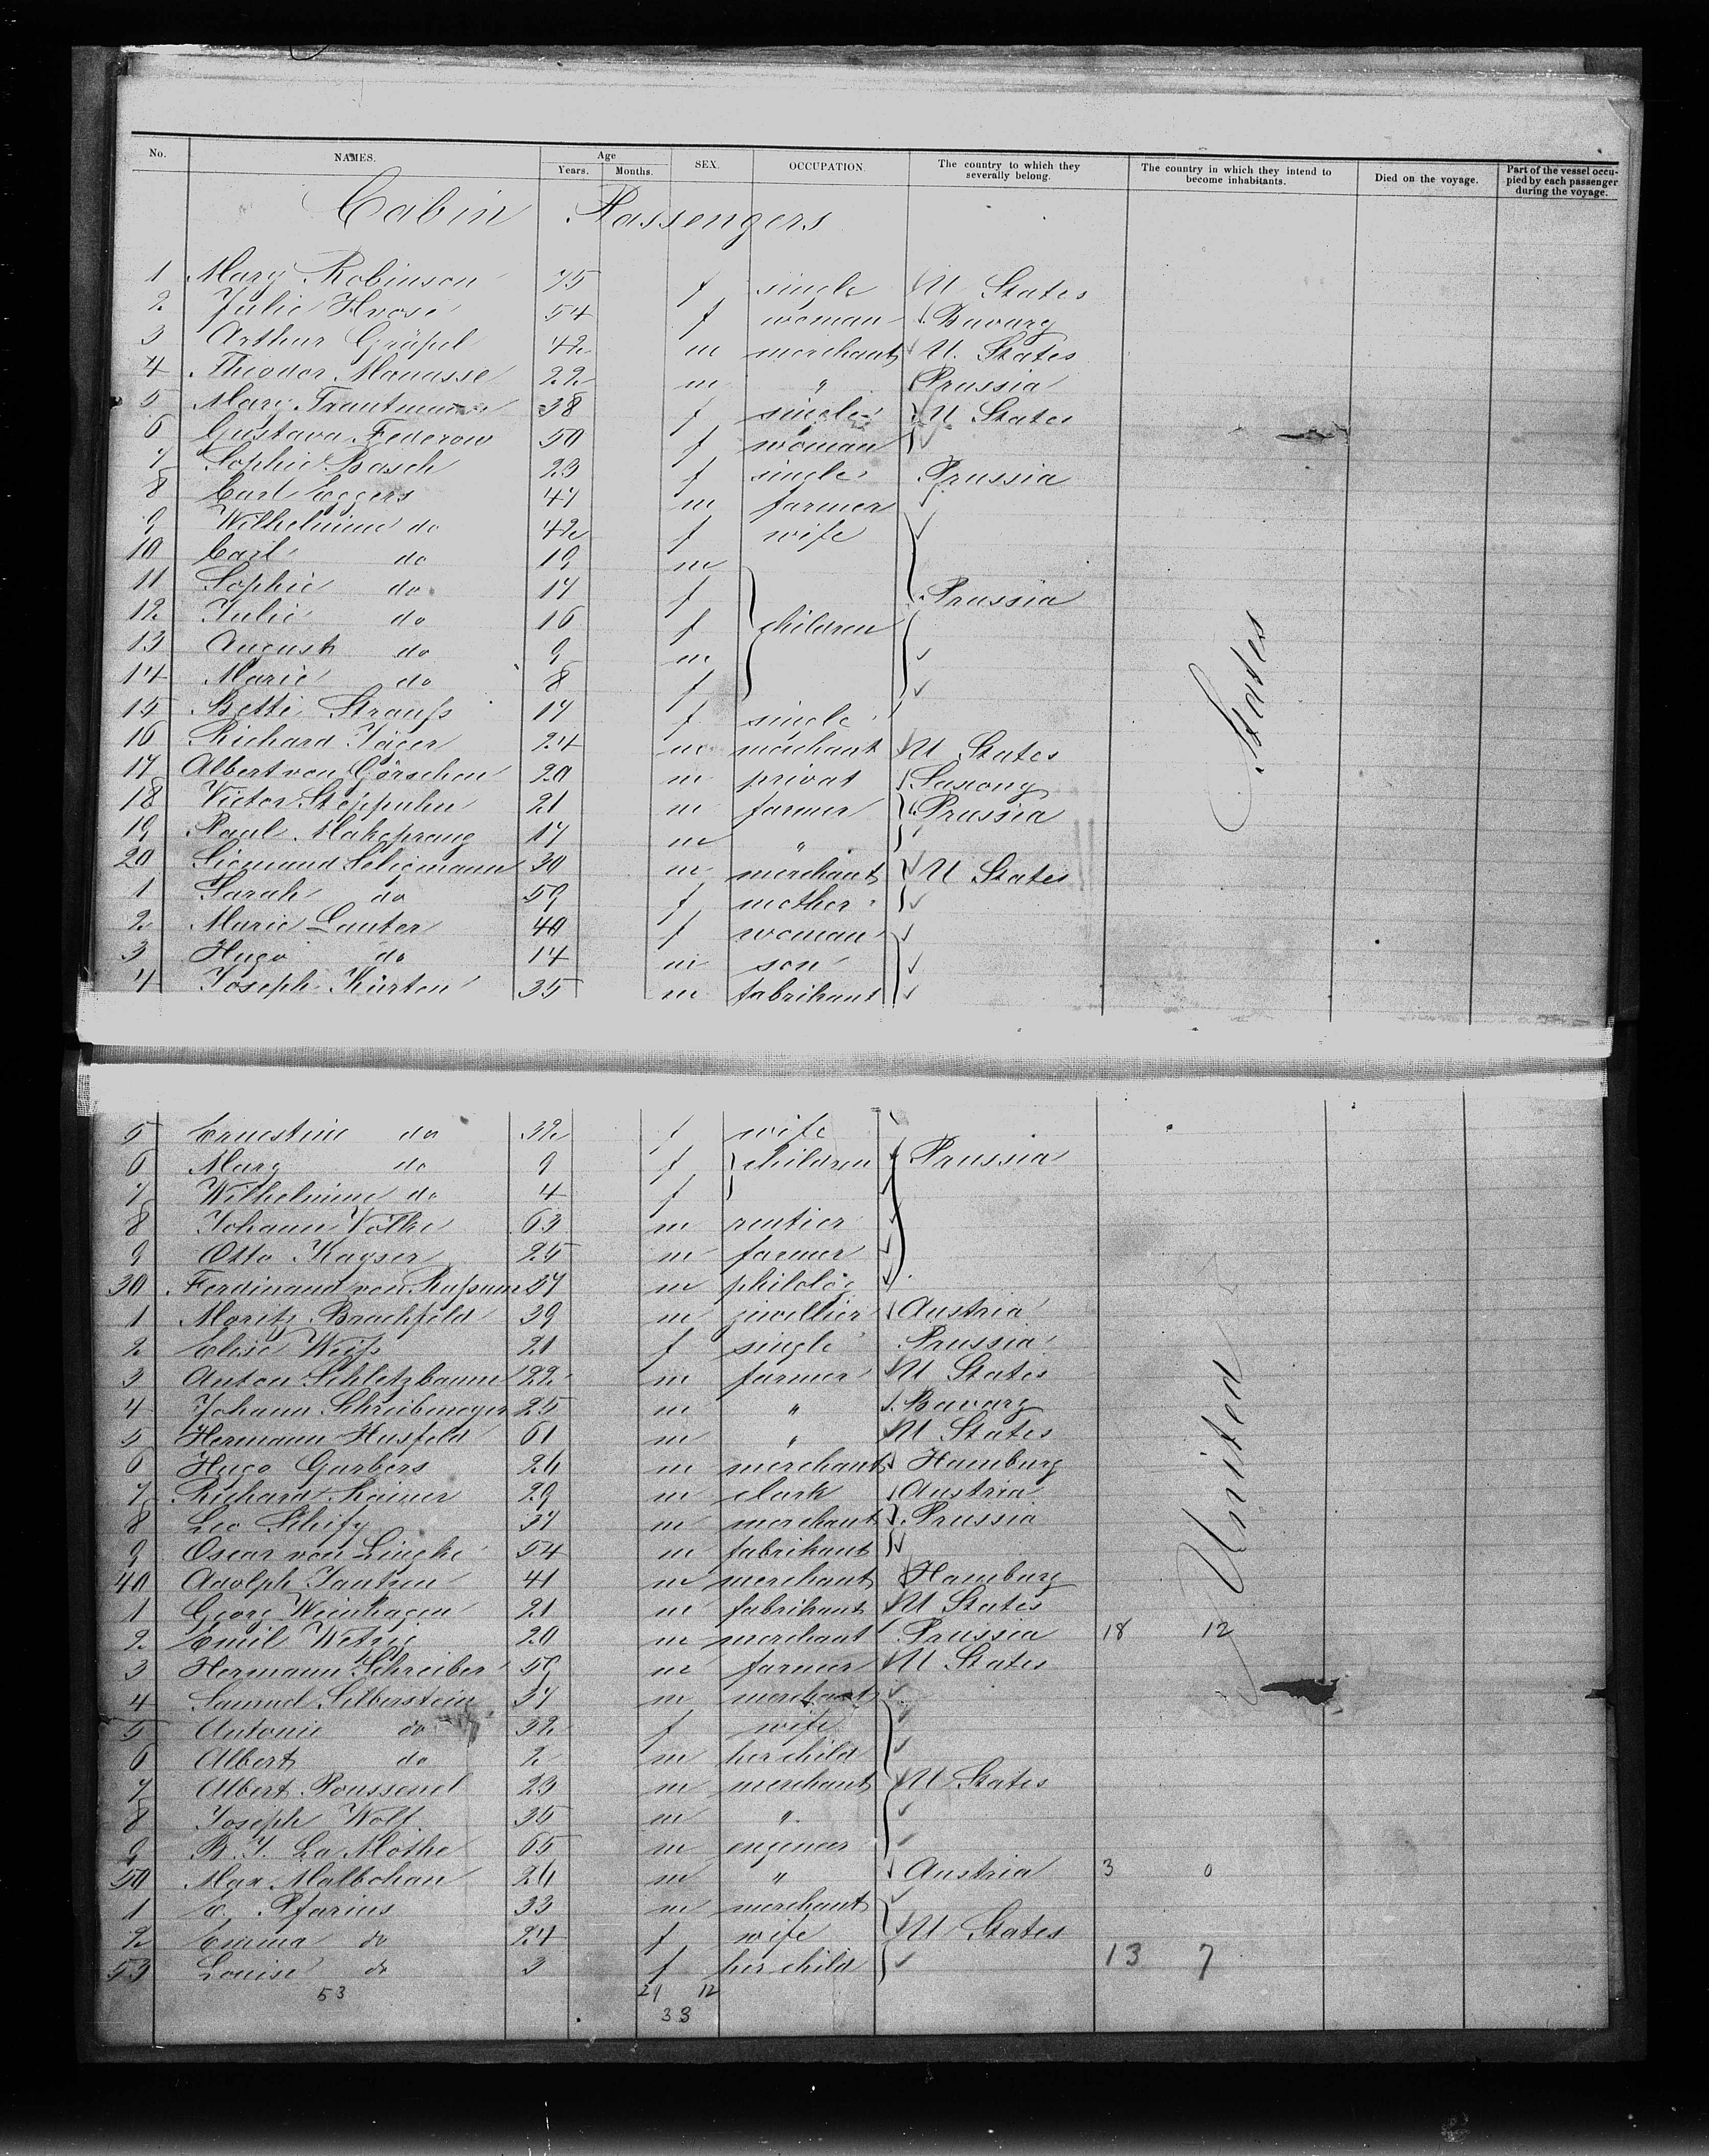 No. NAMES. Age SEX. OCCUPATION. The country to which they severally belong. The country in which they intend to become inhabitants. Died on the voyage. Part of the vessel occupied by each passenger during the voyage.
Years. Months.
Cabin Passengers
1 Mary Robinson 75 f single U States
2 Julie 54 f woman Bavary
3 Arthur Gröpel 42 m merchant U. States
4 Theodor Manasse 22 m " Prussia
5 Mary Trautmann 38 f single U States
6 Gustava Federow 50 f woman
7 Sophie Basch 23 f single Prussia
8 Carl Eggers 47 m farmer
9 Wilhelmine do 42 f wife
10 Carl do 19 m
11 Sophie do 17 f Prussia
12 Julie do 16 f children
13 August do 9 m
14 Marie do 8 f
15 Betti Strauß 17 f single
16 Richard Jäger 24 m merchant U States
17 Albert von Görschen 20 m privat Saxony
18 Victor Steppuhn 21 m farmer Prussia
19 Paul Makoprang 17 m "
20 Sigmund Seligmann 30 m merchant U States
1 Sarah do 59 f mother
2 Marie Lauter 40 f woman
3 Hugo do 14 m son
4 Joseph Kürten 35 m fabrikant
5 Ernestine do 32 f wife
6 Mary do 9 f children Prussia
7 Wilhelmine do 4 f
8 Johann Vothe 63 m rentier
9 Otto Kayser 25 m farmer
30 Ferdinand von 37 m philolog
1 Moritz Brachfeld 39 m juvellier Austria
2 Elise Weiß 21 f single Prussia
3 Anton Schletzbaum 22 m farmer U States
4 Johann Schreibmeyer 25 m " Bavary
5 Hermann Husfeld 61 m " U States
6 Hugo Garbers 26 m merchant Hamburg
7 Richard Kaiser 29 m clark Austria
8 Leo 37 m merchant Prussia
9 Oscar von Lingke 54 m fabrikant
40 Adolph Jantzen 41 m merchant Hamburg
1 Georg Weinhagen 21 m fabrikant U States
2 Emil Wetzig 20 m merchant Prussia 18 12
3 Hermann Schreiber 59 m farmer U States
4 Samuel Silberstein 37 m merchant
5 Antonie do 32 f wife
6 Albert do 2 m her child
7 Albert Poussenel 23 m merchant U States
8 Joseph Wolf. 35 m "
9 B. J. La Mothe 65 m engineer
50 Max Malbohan 26 m " Austria 3 0
1 E. Pfarius 33 m merchant
2 Emma do 24 f wife U States
53 Louise do 3 f her child 13 7
53 21 12
33
United States